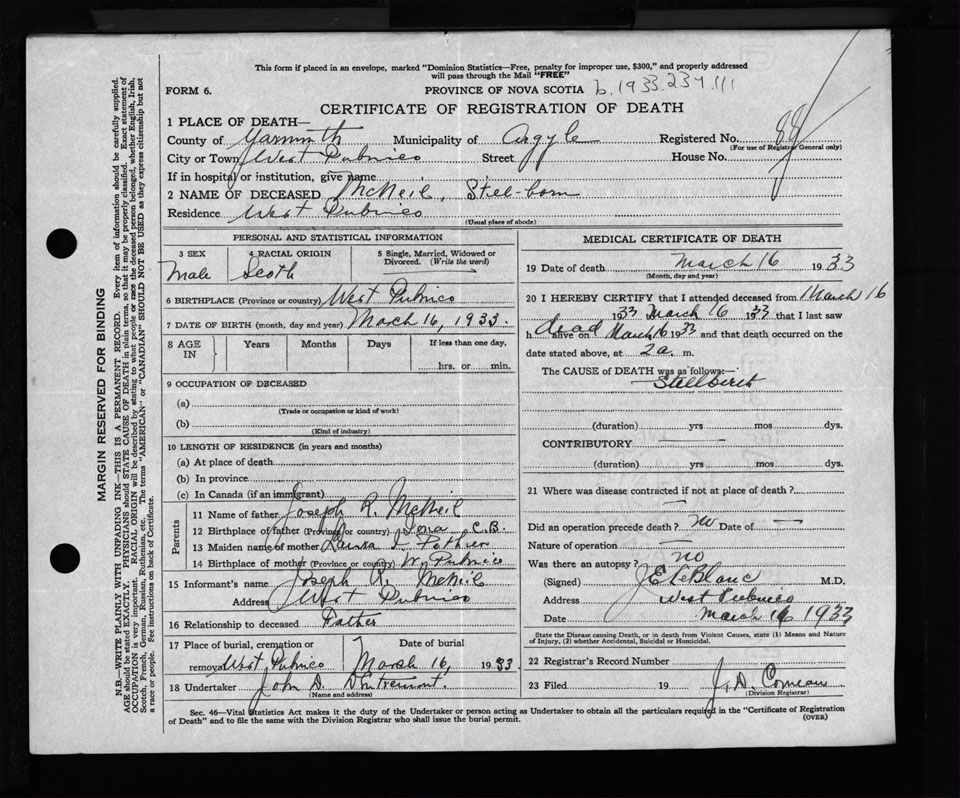 This form if placed in an envelope, marked "Dominion Statistics—Free, penalty for improper use, $300," and properly addressed
will pass through the Mail "FREE"
FORM 6.
PROVINCE OF NOVA SCOTIA b.1933.234.111
CERTIFICATE OF REGISTRATION OF DEATH
1 PLACE OF DEATH—
County of Yarmouth Municipality of Argyle Registered No.
(For use of Registrar General only)
City or Town West Pubnico Street House No.
If in hospital or institution, give name
2 NAME OF DECEASED McNeil, Steel-born
Residence West Pubnico
(Usual place of abode)
PERSONAL AND STATISTICAL INFORMATION
3 SEX 4 RACIAL ORIGIN 5 Single, Married, Widowed or
Divorced. (Write the word)
Male Scoth
6 BIRTHPLACE (Province or country) West Pubnico
7 DATE OF BIRTH (month, day and year) March 16, 1933.
8 AGE IN Years Months Days If less than one day,
hrs. or min.
9 OCCUPATION OF DECEASED
(a)
(Trade or occupation or kind of work)
(b)
(Kind of industry)
10 LENGTH OF RESIDENCE (in years and months)
(a) At place of death
(b) In province
(c) In Canada (if an immigrant)
Parents
11 Name of father Joseph R. McNeil
12 Birthplace of father (Province or country) Iona, C.B.
13 Maiden name of mother Pothier
14 Birthplace of mother (Province or country) W. Pubnico
15 Informant's name Joseph R. McNeil
Address West Pubnico
16 Relationship to deceased Father
17 Place of burial, cremation or Date of burial
removal West Pubnico March 16, 1933
18 Undertaker John D. D'Entremont.
(Name and address)
MEDICAL CERTIFICATE OF DEATH
19 Date of death March 16 1933
(Month, day and year)
20 I HEREBY CERTIFY that I attended deceased from March 16
1933 March 16 1933 that I last saw
h alive on dead March 16 1933 and that death occurred on the
date stated above, at 2 a. m.
The CAUSE of DEATH was as follows:—
Stillbirth
(duration) yrs mos dys.
CONTRIBUTORY
(duration) yrs. mos. dys.
21 Where was disease contracted if not at place of death?
—
Did an operation precede death? no Date of —
Nature of operation —
Was there an autopsy? no
(Signed) J E LeBlanc M.D.
Address West Pubnico
Date March 16 1933
State the Disease causing Death, or in death from Violent Causes, state (1) Means and Nature
of Injury, (2) whether Accidental, Suicidal or Homicidal.
22 Registrar's Record Number
23 Filed 19 J. D. Comeau
(Division Registrar)
Sec. 46—Vital Statistics Act makes it the duty of the Undertaker or person acting as Undertaker to obtain all the particulars required in the "Certificate of Registration
of Death" and to file the same with the Division Registrar who shall issue the burial permit. (OVER)
MARGIN RESERVED FOR BINDING
N.B.—WRITE PLAINLY WITH UNFADING INK—THIS IS A PERMANENT RECORD. Every item of information should be carefully supplied.
AGE should be stated EXACTLY. PHYSICIANS should STATE CAUSE OF DEATH in plain terms, so that it may be properly classified. Exact statement of
OCCUPATION is very important. RACIAL ORIGIN will be described by stating to what people or race the deceased person belonged, whether English, Irish,
Scotch, French, German, Russian, Ruthenian, etc. The terms "AMERICAN" or "CANADIAN" SHOULD NOT BE USED as they express citizenship but not
a race or people. See instructions on back of Certificate.